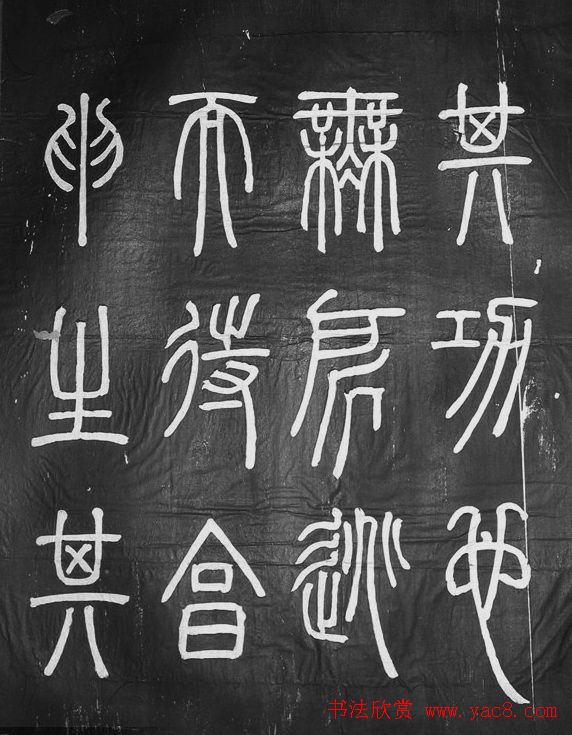 其功也
無所逃
而待亯
申生其
书法欣赏 www.yac8.com